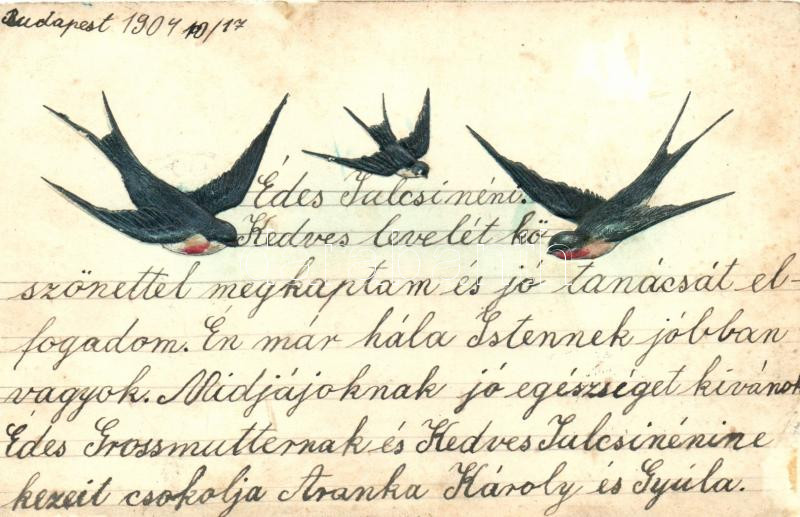 Budapest 1904 10/17
Édes Julcsinéni.
Kedves levelét kö-
szönettel megkaptam és jó tanácsát el-
fogadom. Én már hála Istennek jóbban
vagyok. Midjájoknak jó egészséget kivánok
Édes Grossmutternak és Kedves Julcsinénine
kezeit csokolja Aranka Károly és Gyúla.